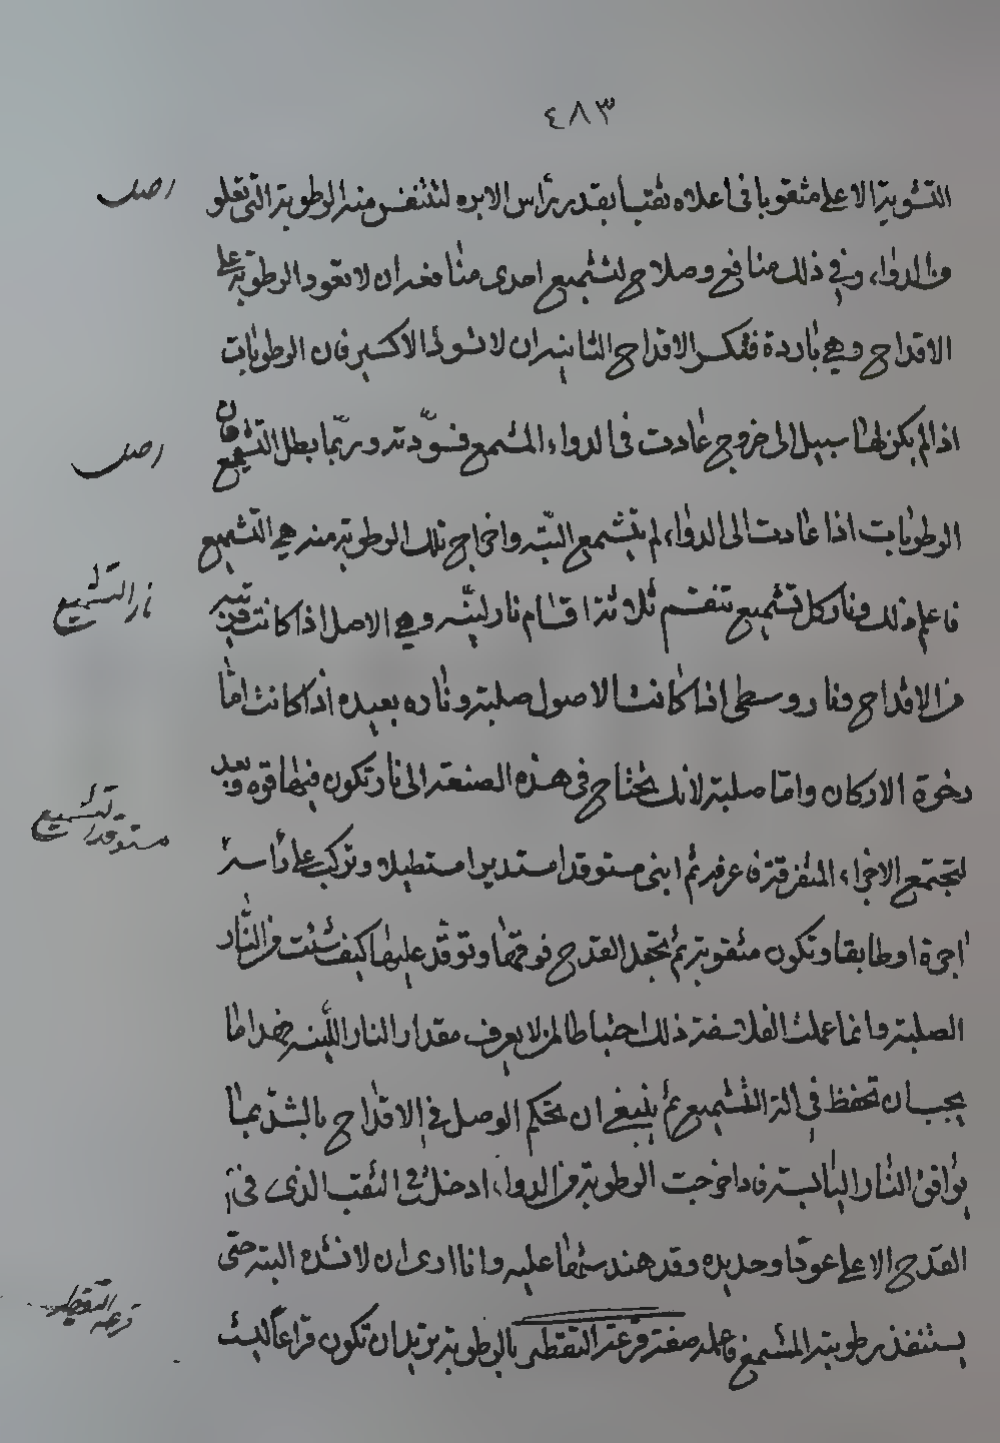 ٤٨٣
التشوية الاعلى مثقوبا فى اعلاه ثقبا بقدر رأس الابره لتتنفس منه الرطوبة التى تعلو
اصل
من الدواء وفي ذلك منافع وصلاح لتشميع احدى منافعه ان لا تعود الرطوبة على
الاقداح وهي باردة فتكسر الاقداح الثانيه ان لا تسود الاكسير فان الرطوبات
اذا لم يكن لها سبيل الى خروج عادت فى الدواء المشمع فسوّدته وربّما بطل التشميع فان
اصل
الرطوبات اذا عادت الى الدواء لم يتشمع البتّه واخراج تلك الرطوبة منه هي التشميع
نار التشميع
فاعلم ذلك ونار كل تشميع تنقسم ثلاثة اقسام نار لينّه وهي الاصل اذا كانت قريبه
من الاقداح ونار وسطى اذا كانت الاصول صلبة وناره بعيده اذا كانت امّا
رخوة الاركان وامّا صلبة لانك تحتاج فى هذه الصنعه الى نار تكون فيها قوه وبعد
مستوقد التشميع
لتجتمع الاجزاء المتفرقة فاعرفه ثم ابنى مستوقدا مستديرا مستطيلا وتركب على رأسه
اجرة او طابقا وتكون مثقوبة ثم تجعل القدح فوقها وتوقد عليها كيف شئت من النّار
الصلبة وانما عملت الفلاسفة ذلك احتياطا لمن لا يعرف مقدار النار اللّينه فهذا ما
يجب ان تحفظ في الة التشميع ثم ينبغي ان تحكم الوصل في الاقداح بالشدّ بما
يوافق النار اليابسة فاذا خرجت الرطوبة من الدواء ادخلت في الثقب الذى فى
القدح الاعلى عودًا وحديده وقد هندستها عليه وانا ارى ان لا تشده البته حتى
قرعة التقطير
يستنفذ رطوبة المشمع فاعلمه صفة قرعة التقطير بالرطوبة تريد ان تكون قراعا ليست